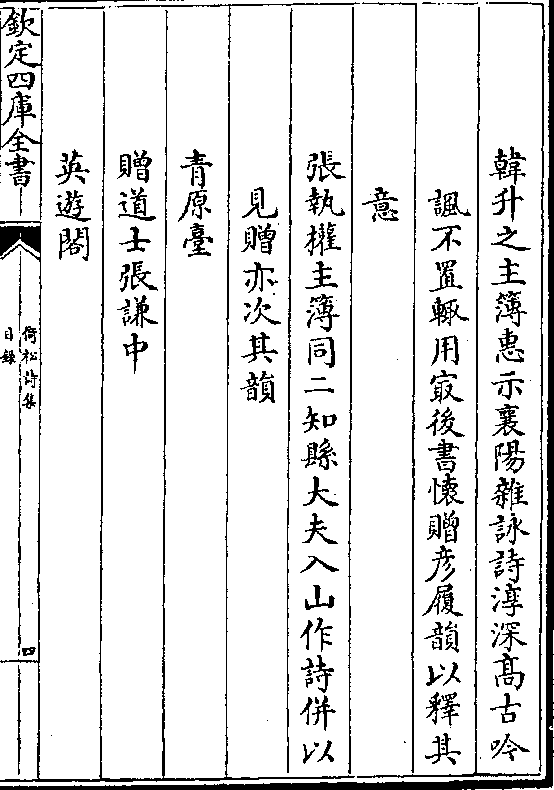 韓升之主簿惠示襄陽雜詠詩淳深髙古吟
諷不置輙用㝡後書懷贈彦履韻以釋其
意
張執權主簿同二知縣大夫入山作詩併以
見贈亦次其韻
青原臺
贈道士張謙中
英遊閣
欽定四庫全書
倚松詩集
目錄
四